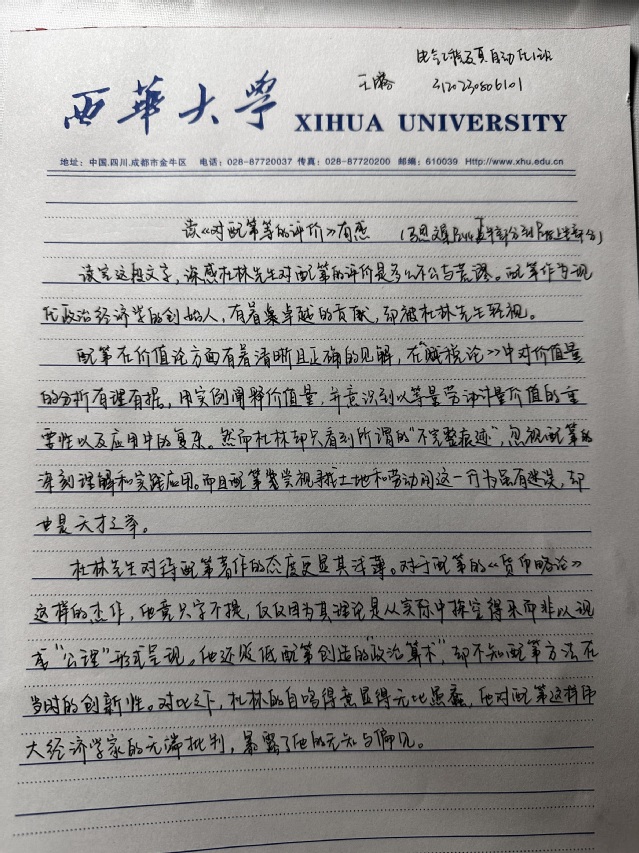 电气工程及其自动化1班
王 3120230806101
西華大學 XIHUA UNIVERSITY
地址：中国.四川.成都市金牛区 电话：028-87720037 传真：028-87720200 邮编：610039 Http://www.xhu.edu.cn
读《对配第等的评价》有感 (马恩文集
读完这段文字，深感杜林先生对配第的评价是多么不公与荒谬。配第作为现
代政治经济学的创始人，有着卓越的贡献，却被杜林先生轻视。
配第在价值论方面有着清晰且正确的见解，在《赋税论》中对价值量
的分析有理有据，用实例阐释价值量，并意识到以等量劳动计量价值的重
要性以及应用中的复杂。然而杜林却只看到所谓的“不完整痕迹”，忽视配第的
深刻理解和实践应用。而且配第尝试寻找土地和劳动间这一行为虽有错误，却
也是天才之举。
杜林先生对待配第著作的态度更显其浅薄。对于配第的《货币略论》
这样的杰作，他竟只字不提，仅仅因为其理论是从实际中探究得来而非以现
成“公理”形式呈现。他还贬低配第创造的“政治算术”，却不知配第方法在
当时的创新性。对比之下，杜林的自鸣得意显得无比愚蠢，他对配第这样伟
大经济学家的无端批判，暴露了他的无知与偏见。